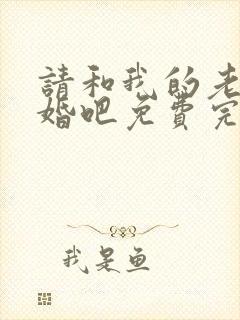 請和我的老
婚吧免費完
我是鱼